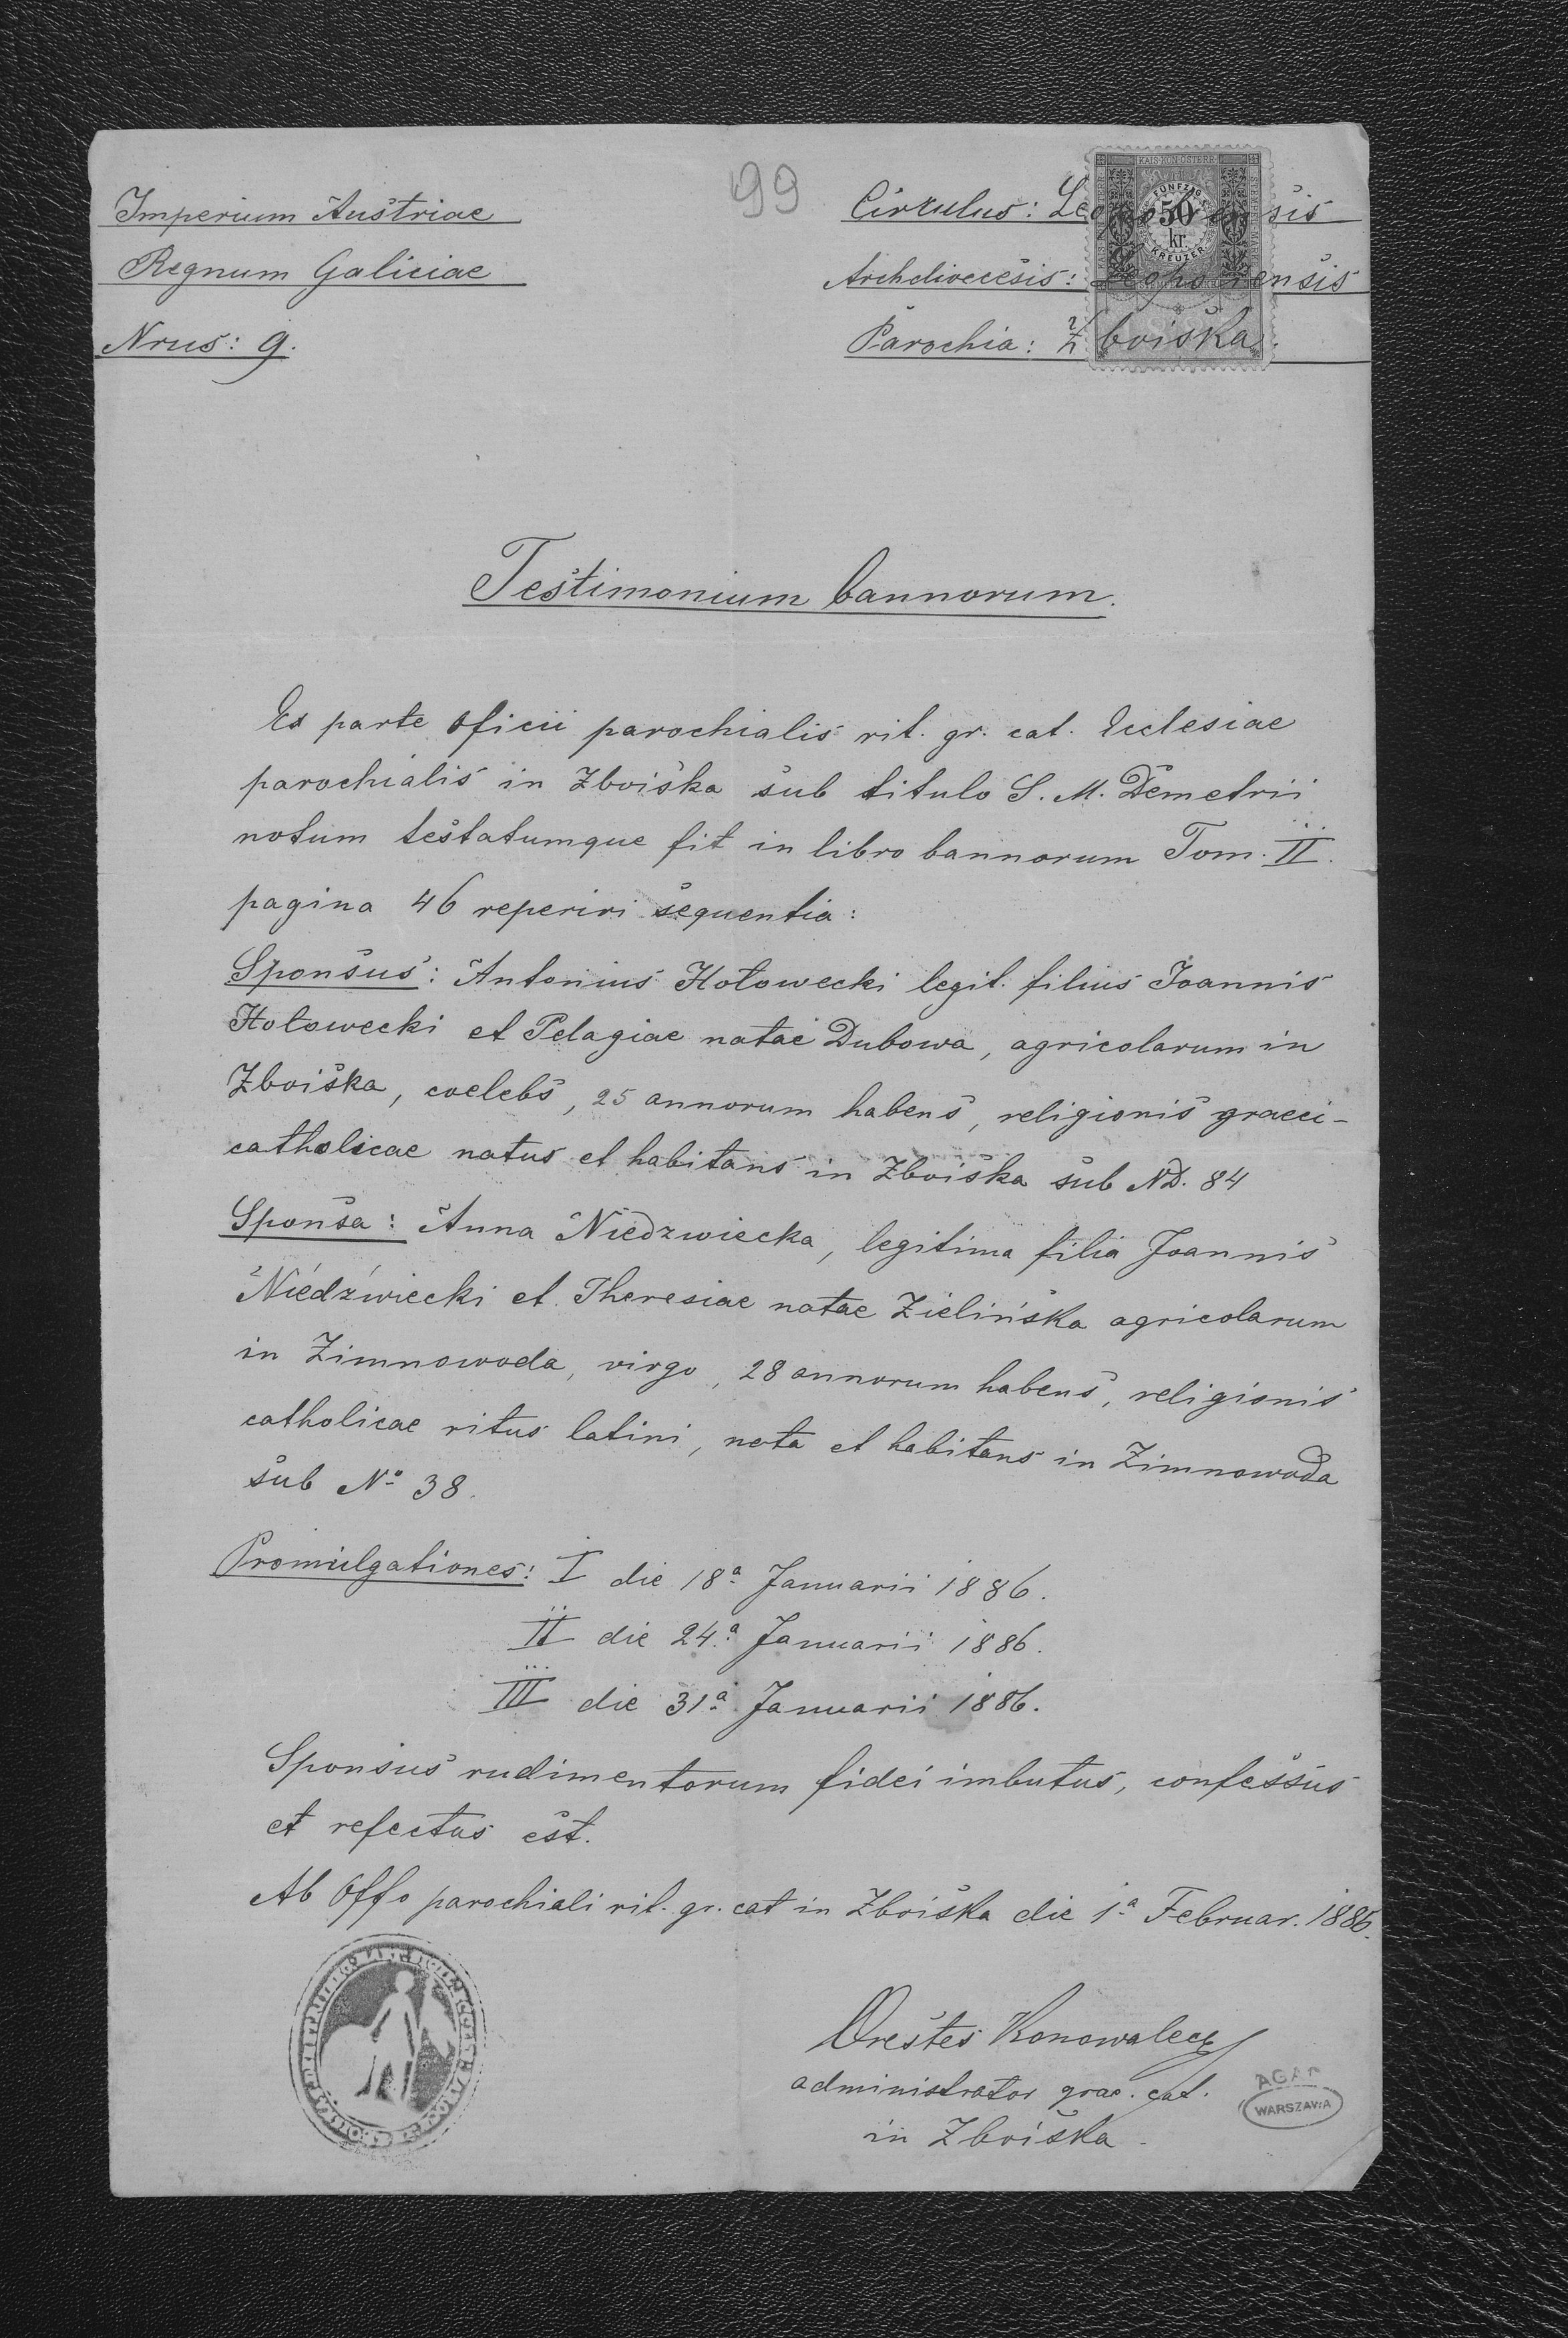 99
Imperium Austriae
Regnum Galiciae
Nrus: 9.
Cirkulus: Leopoliensis
Archdioecesis: Leopoliensis
Parochia: Zboiska.
KAIS. KÖN. ÖSTERR.
FÜNFZIG
50
kr.
KREUZER
Testimonium bannorum.
Ex parte oficii parochialis rit. gr. cat. Ecclesiae
parochialis in Zboiska sub titulo S. M. Demetrii
notum testatumque fit in libro bannorum Tom. II.
pagina 46 reperiri sequentia:
Sponsus: Antonius Hołowecki legit. filius Joannis
Hołowecki et Pelagiae natae Dubowa, agricolarum in
Zboiska, coelebs, 25 annorum habens, religionis graeci-
catholicae natus et habitans in Zboiska sub ND. 84
Sponsa: Anna Niedzwiecka, legitima filia Joannis
Niedźwiecki et Theresiae natae Zielińska agricolarum
in Zimnowoda, virgo, 28 annorum habens, religionis
catholicae ritus latini, nata et habitans in Zimnowoda
sub No 38.
Promulgationes: I die 18a Januarii 1886.
II die 24a Januarii 1886.
III die 31a Januarii 1886.
Sponsus rudimentorum fidei imbutus, confessus
et refectus est.
Ab Offo parochiali rit. gr. cat in Zboiska die 1a Februar. 1886.
Orestes Konowalec
administrator grae. cat.
in Zboiska.
AGAD
WARSZAWA